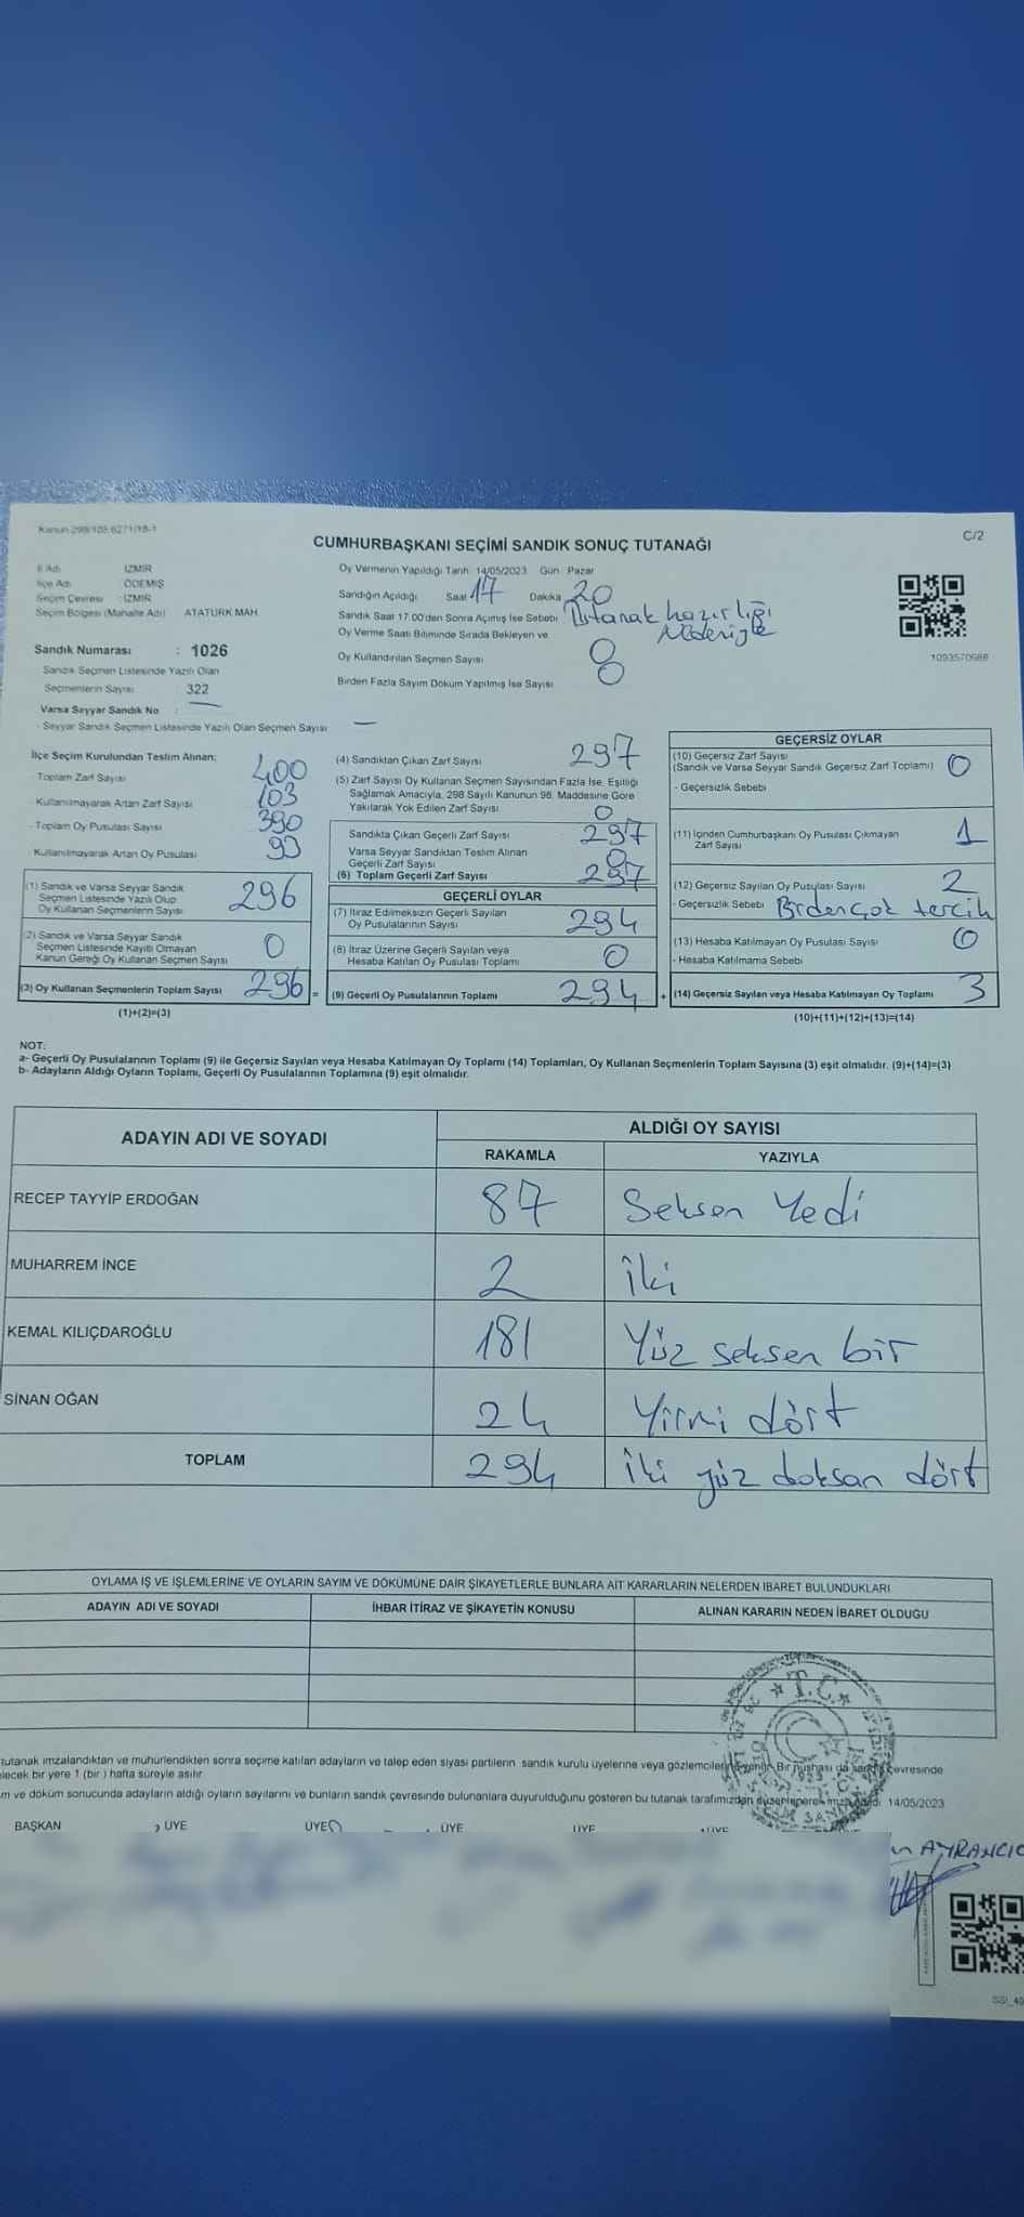 Kanun 298/105 6271/18-1
C/2
CUMHURBAŞKANI SEÇİMİ SANDIK SONUÇ TUTANAĞI
İl Adı İZMİR
İlçe Adı ÖDEMİŞ
Seçim Çevresi : İZMİR
Seçim Bölgesi (Mahalle Adı) ATATÜRK MAH.
Sandık Numarası : 1026
Sandık Seçmen Listesinde Yazılı Olan
Seçmenlerin Sayısı 322
Varsa Seyyar Sandık No :
- Seyyar Sandık Seçmen Listesinde Yazılı Olan Seçmen Sayısı —
Oy Vermenin Yapıldığı Tarih: 14/05/2023 Gün : Pazar
Sandığın Açıldığı Saat 17 Dakika 20
Sandık Saat 17:00'den Sonra Açımış İse Sebebi Tutanak hazırlığı
Oy Verme Saati Bitiminde Sırada Bekleyen ve
Oy Kullandırılan Seçmen Sayısı
Birden Fazla Sayım Döküm Yapılmış İse Sayısı
1093570688
İlçe Seçim Kurulundan Teslim Alınan:
- Toplam Zarf Sayısı 400
- Kullanılmayarak Artan Zarf Sayısı 103
- Toplam Oy Pusulası Sayısı 390
- Kullanılmayarak Artan Oy Pusulası 93
(1) Sandık ve Varsa Seyyar Sandık
Seçmen Listesinde Yazılı Olup
Oy Kullanan Seçmenlerin Sayısı 296
(2) Sandık ve Varsa Seyyar Sandık
Seçmen Listesinde Kayıtlı Olmayan
Kanun Gereği Oy Kullanan Seçmen Sayısı 0
(3) Oy Kullanan Seçmenlerin Toplam Sayısı 296 =
(1)+(2)=(3)
(4) Sandıktan Çıkan Zarf Sayısı 297
(5) Zarf Sayısı Oy Kullanan Seçmen Sayısından Fazla İse, Eşitliği
Sağlamak Amacıyla, 298 Sayılı Kanunun 98. Maddesine Göre
Yakılarak Yok Edilen Zarf Sayısı 0
Sandıkta Çıkan Geçerli Zarf Sayısı 297
Varsa Seyyar Sandıktan Teslim Alınan
Geçerli Zarf Sayısı 0
(6) Toplam Geçerli Zarf Sayısı 297
GEÇERLİ OYLAR
(7) İtiraz Edilmeksizin Geçerli Sayılan
Oy Pusulalarının Sayısı 294
(8) İtiraz Üzerine Geçerli Sayılan veya
Hesaba Katılan Oy Pusulası Toplamı 0
(9) Geçerli Oy Pusulalarının Toplamı 294 +
GEÇERSİZ OYLAR
(10) Geçersiz Zarf Sayısı
(Sandık ve Varsa Seyyar Sandık Geçersiz Zarf Toplamı) 0
- Geçersizlik Sebebi
(11) İçinden Cumhurbaşkanı Oy Pusulası Çıkmayan
Zarf Sayısı 1
(12) Geçersiz Sayılan Oy Pusulası Sayısı 2
- Geçersizlik Sebebi Birden çok tercih
(13) Hesaba Katılmayan Oy Pusulası Sayısı 0
- Hesaba Katılmama Sebebi
(14) Geçersiz Sayılan veya Hesaba Katılmayan Oy Toplamı 3
(10)+(11)+(12)+(13)=(14)
NOT:
a- Geçerli Oy Pusulalarının Toplamı (9) ile Geçersiz Sayılan veya Hesaba Katılmayan Oy Toplamı (14) Toplamları, Oy Kullanan Seçmenlerin Toplam Sayısına (3) eşit olmalıdır. (9)+(14)=(3)
b- Adayların Aldığı Oyların Toplamı, Geçerli Oy Pusulalarının Toplamına (9) eşit olmalıdır.
ADAYIN ADI VE SOYADI
ALDIĞI OY SAYISI
RAKAMLA YAZIYLA
RECEP TAYYİP ERDOĞAN 87 Seksen Yedi
MUHARREM İNCE 2 İki
KEMAL KILIÇDAROĞLU 181 Yüz seksen bir
SİNAN OĞAN 24 Yirmi dört
TOPLAM 294 İki yüz doksan dört
OYLAMA İŞ VE İŞLEMLERİNE VE OYLARIN SAYIM VE DÖKÜMÜNE DAİR ŞİKAYETLERLE BUNLARA AİT KARARLARIN NELERDEN İBARET BULUNDUKLARI
ADAYIN ADI VE SOYADI İHBAR İTİRAZ VE ŞİKAYETİN KONUSU ALINAN KARARIN NEDEN İBARET OLDUĞU
T.C.
tutanak imzalandıktan ve mühürlendikten sonra seçime katılan adayların ve talep eden siyasi partilerin sandık kurulu üyelerine veya gözlemcilerine Bir nüshası da sandık çevresinde
lecek bir yere 1 (bir ) hafta süreyle asılır.
m ve döküm sonucunda adayların aldığı oyların sayılarını ve bunların sandık çevresinde bulunanlara duyurulduğunu gösteren bu tutanak tarafımızdan 14/05/2023
BAŞKAN ÜYE ÜYE ÜYE ÜYE ÜYE
AYRANCIO